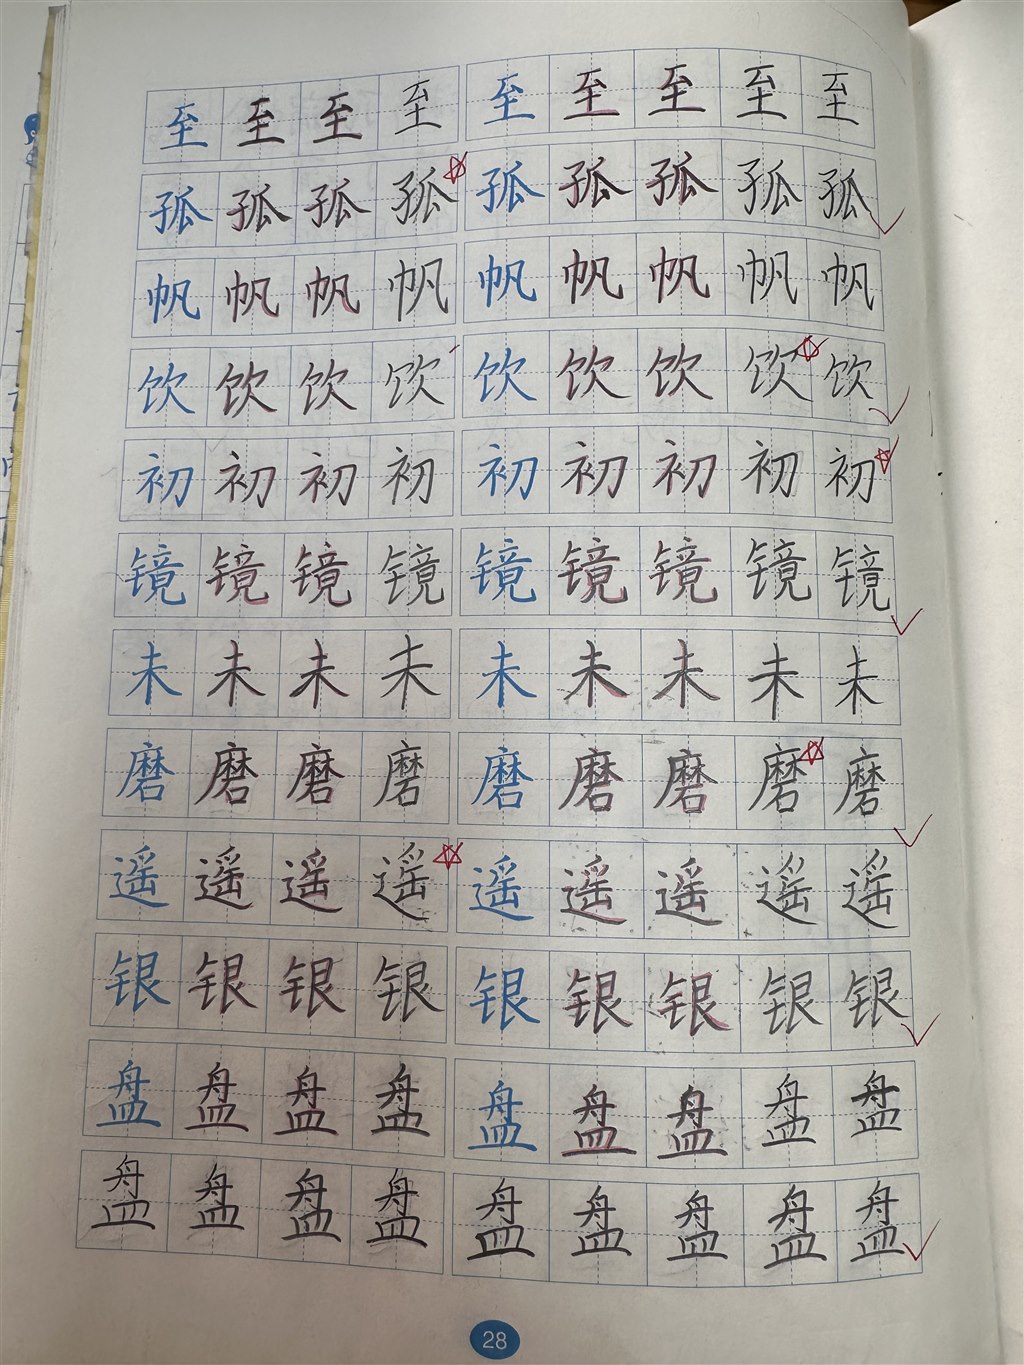 至至至至至至至至至
孤孤孤孤孤孤孤孤孤
帆帆帆帆帆帆帆帆帆
饮饮饮饮饮饮饮饮饮
初初初初初初初初初
镜镜镜镜镜镜镜镜镜
未未未未未未未未未
磨磨磨磨磨磨磨磨磨
遥遥遥遥遥遥遥遥遥
银银银银银银银银银
盘盘盘盘盘盘盘盘盘
盘盘盘盘盘盘盘盘盘
28